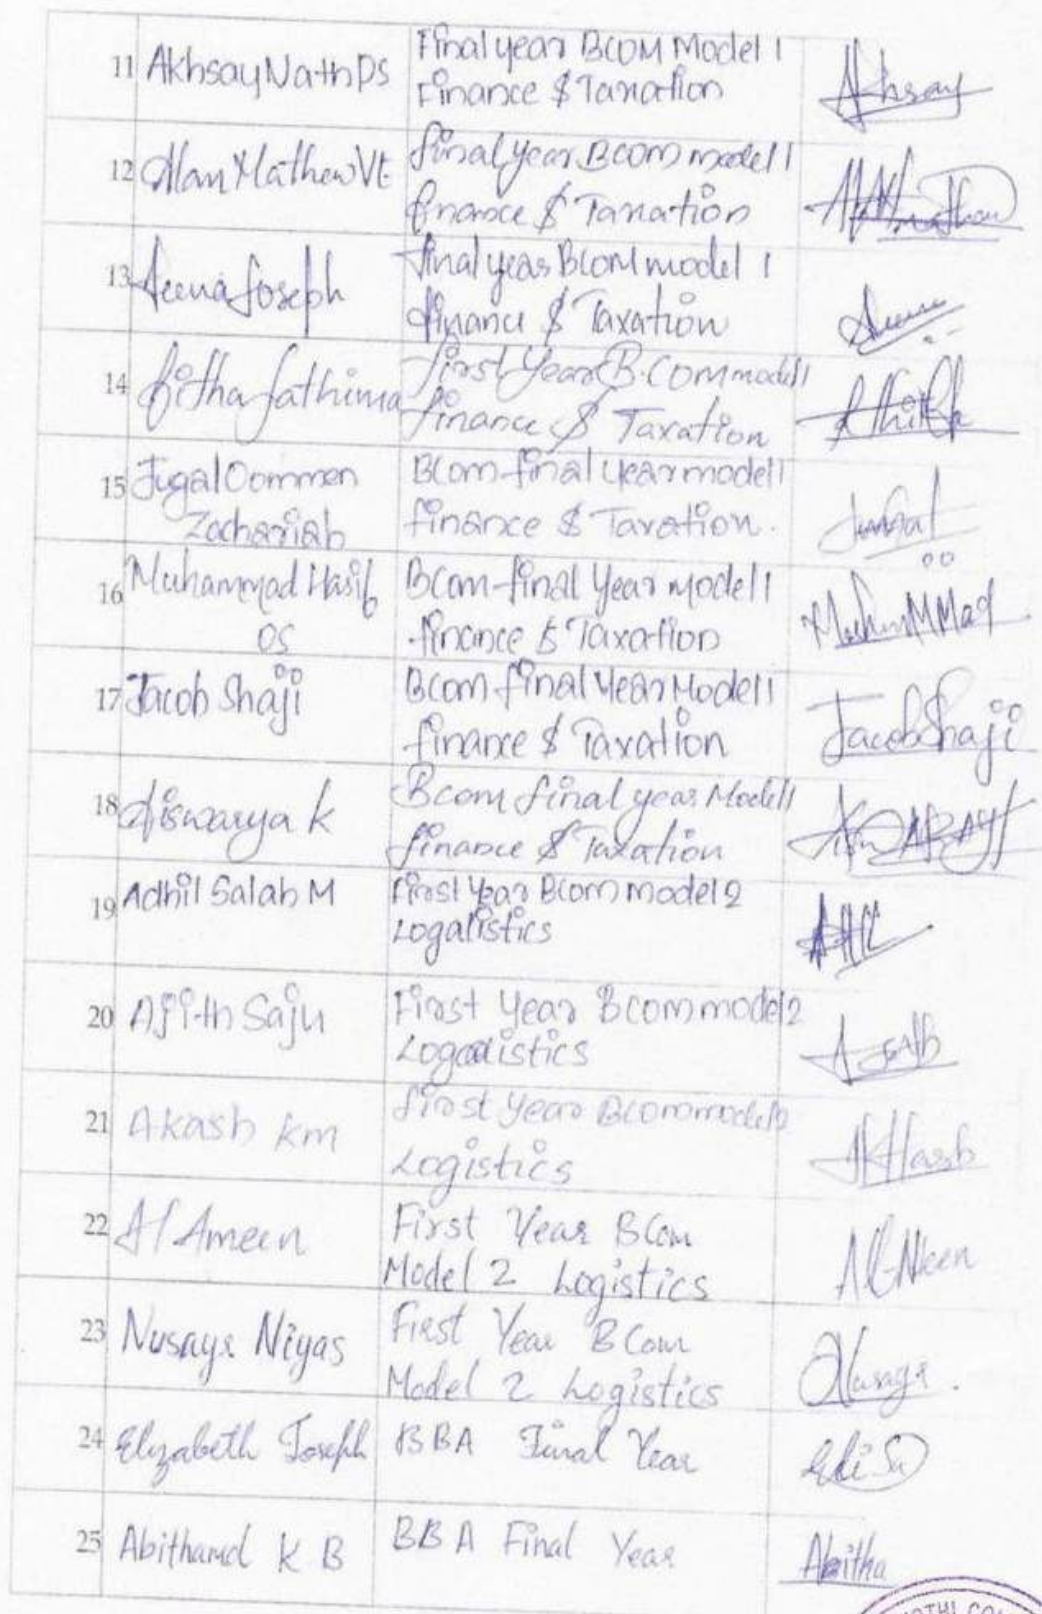 11 Akhsay Nath PS Final year BCOM Model 1 Akhsay
Finance & Taxation
12 Alan Mathew Vt final year BCOM model 1
finance & Taxation
13 Leena Joseph final year BCOM model 1
finance & Taxation
14 fitha fathima first Year B.COM model 1
finance & Taxation
15 Jugal Oommen BCom final year model 1
Zachariah finance & Taxation.
16 Muhammad Hasib BCom final Year Model 1
OS finance & Taxation
17 Jacob Shaji BCom final Year Model 1 Jacob Shaji
finance & Taxation
18 Aiswarya K Bcom final year Model 1
finance & Taxation
19 Adhil Salah M First Year BCom model 2
Logalistics
20 Ajith Saju First Year BCom model 2
Logalistics
21 Akash km first year BCom model 2 Akash
Logistics
22 Al Ameen First Year BCom
Model 2 Logistics
23 Nusaya Niyas First Year BCom Nusaya.
Model 2 Logistics
24 Elyzabeth Joseph BBA Final Year
25 Abithamol K B BBA Final Year Abitha